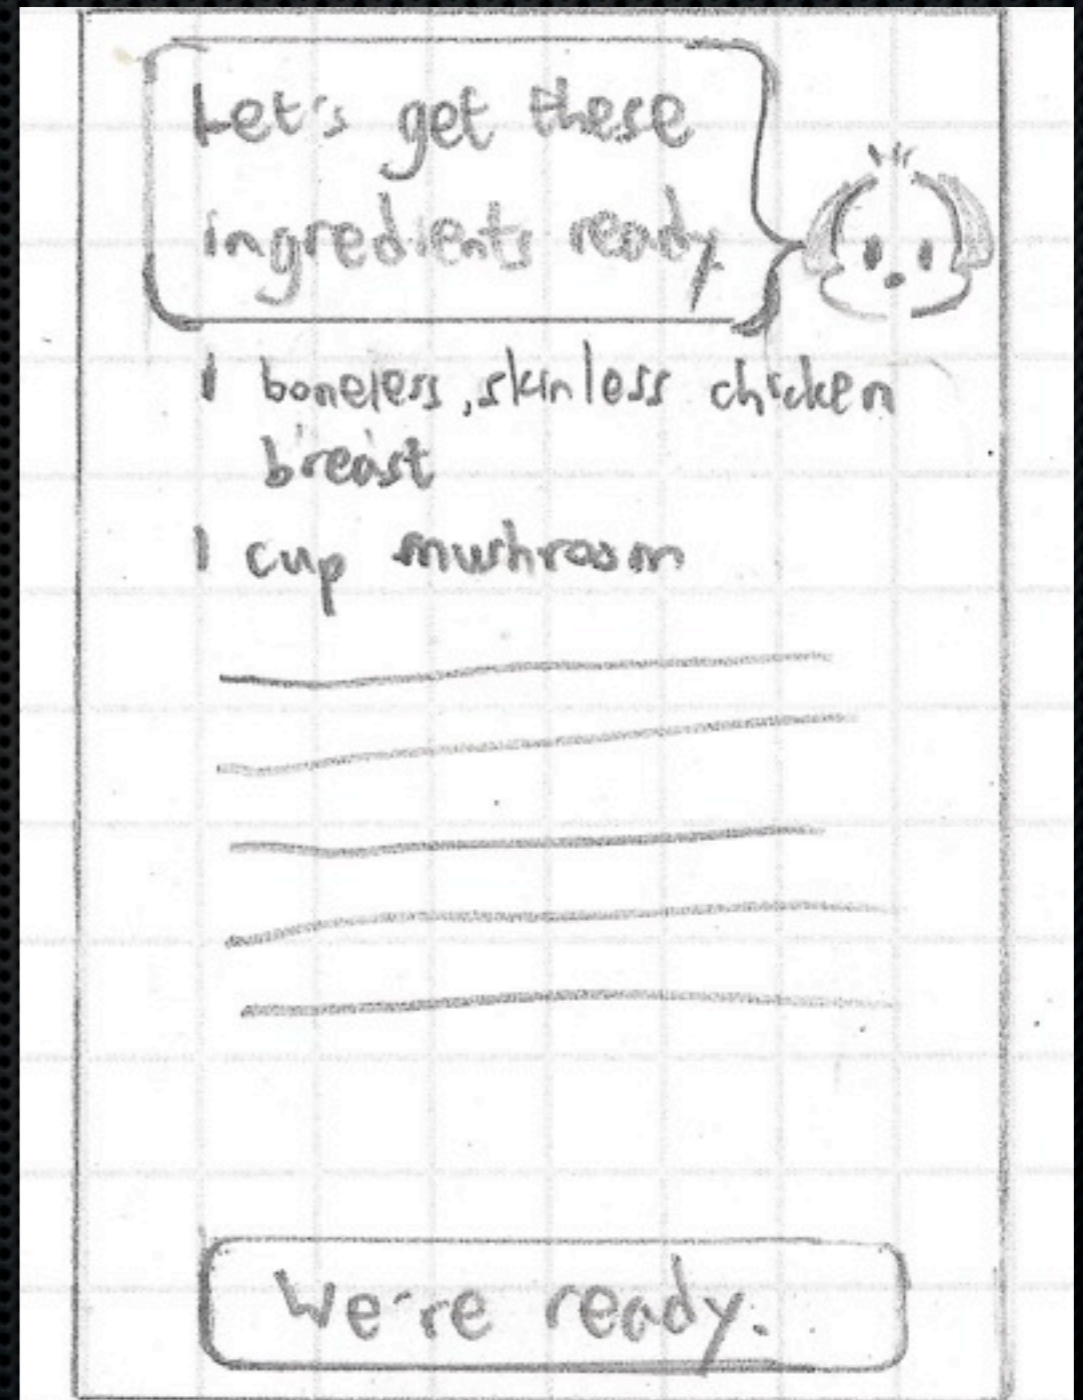 Let's get these
ingredients ready.
1 boneless, skinless chicken
breast
1 cup mushroom
We're ready.